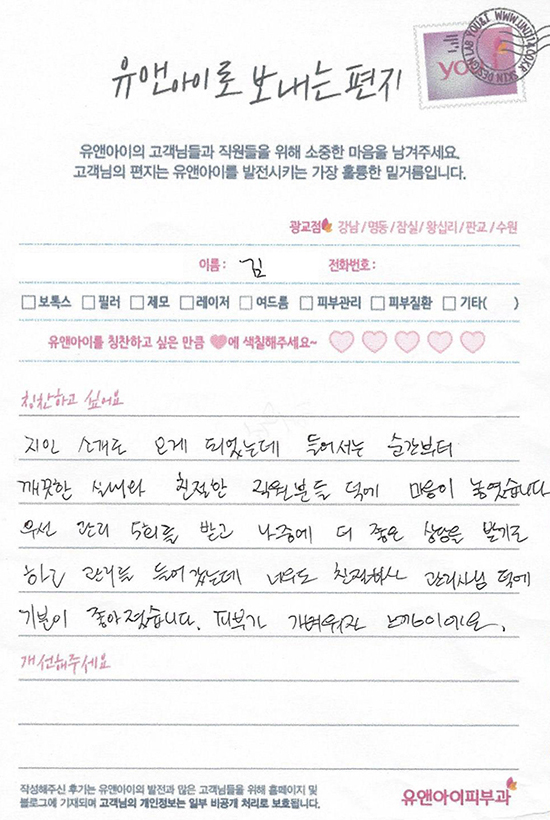 YOU&I WWW.UNI114.CO.KR SKIN DESIGN LAB
유앤아이로 보내는 편지
유앤아이의 고객님들과 직원들을 위해 소중한 마음을 남겨주세요.
고객님의 편지는 유앤아이를 발전시키는 가장 훌륭한 밑거름입니다.
광교점 강남/명동/잠실/왕십리/판교/수원
이름: 김 전화번호:
보톡스 필러 제모 레이저 여드름 피부관리 피부질환 기타( )
유앤아이를 칭찬하고 싶은 만큼 에 색칠해주세요~
칭찬하고 싶어요
지인 소개로 오게 되었는데 들어서는 순간부터
깨끗한 실내와 친절한 직원분들 덕에 마음이 놓였습니다
우선 관리 5회를 받고 나중에 더 좋은 상담을 받기로
하고 관리를 들어갔는데 너무도 친절하신 관리사님 덕에
기분이 좋아졌습니다. 피부가 가벼워진 느낌이에요.
개선해주세요
작성해주신 후기는 유앤아이의 발전과 많은 고객님들을 위해 홈페이지 및
블로그에 기재되며 고객님의 개인정보는 일부 비공개 처리로 보호됩니다.
유앤아이피부과